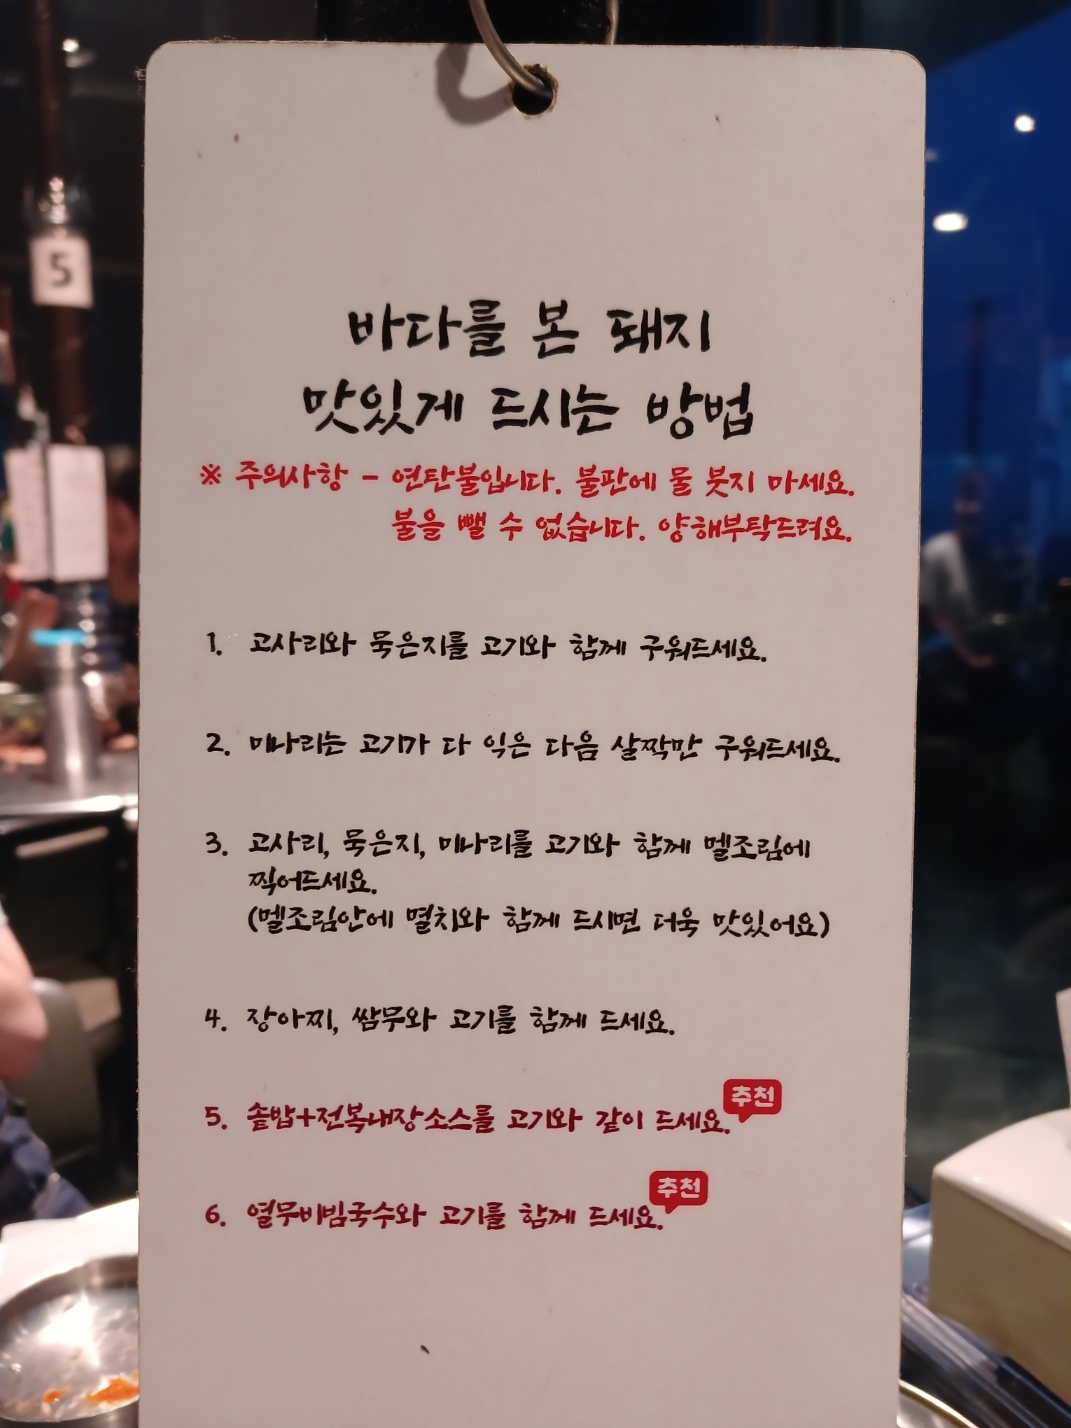 5
바다를 본 돼지
맛있게 드시는 방법
※ 주의사항 - 연탄불입니다. 불판에 물 붓지 마세요.
불을 뺄 수 없습니다. 양해부탁드려요.
1. 고사리와 묵은지를 고기와 함께 구워드세요.
2. 미나리는 고기가 다 익은 다음 살짝만 구워드세요.
3. 고사리, 묵은지, 미나리를 고기와 함께 멜조림에
찍어드세요.
(멜조림안에 멸치와 함께 드시면 더욱 맛있어요)
4. 장아찌, 쌈무와 고기를 함께 드세요.
5. 솥밥+전복내장소스를 고기와 같이 드세요. 추천
6. 열무비빔국수와 고기를 함께 드세요. 추천